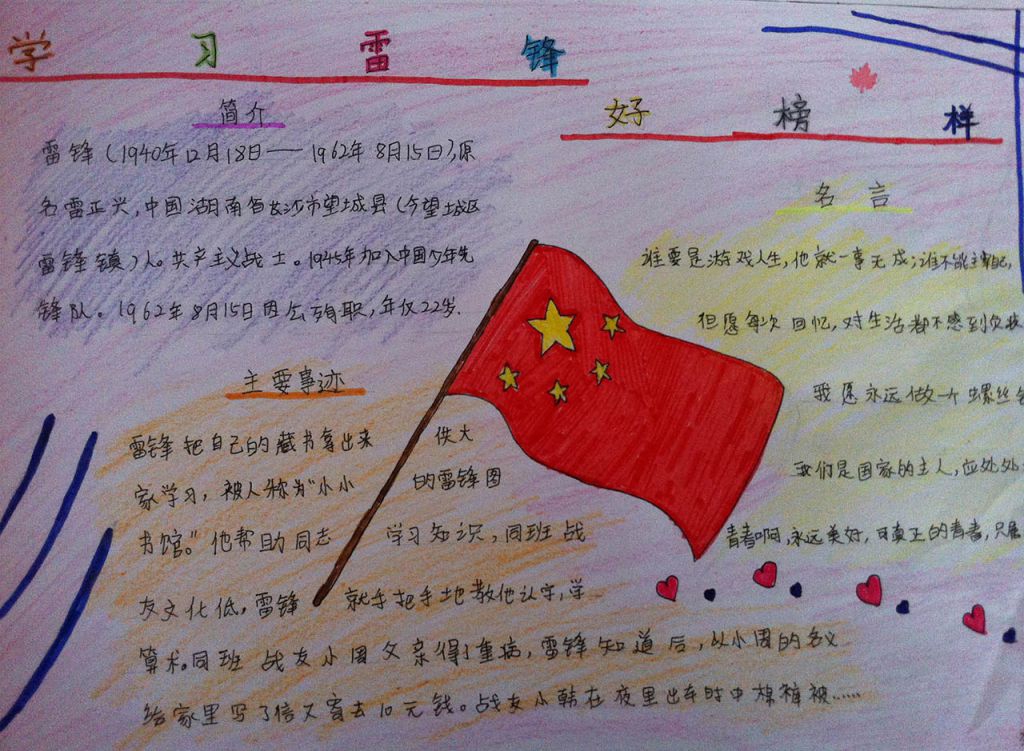 学习雷锋
好榜样
简介
雷锋(1940年12月18日——1962年8月15日),原
名雷正兴,中国湖南省长沙市望城县(今望城区
雷锋镇)人。共产主义战士。1945年加入中国少年先
锋队。1962年8月15日因公殉职,年仅22岁.
主要事迹
雷锋把自己的藏书拿出来 供大
家学习,被人称为“小小 的雷锋图
书馆。”他帮助同志 学习知识,同班战
友文化低,雷锋 就手把手地教他认字,学
算术。同班战友小周父亲得了重病,雷锋知道后,以小周的名义
给家里写了信又寄去10元钱。战友小韩在夜里出车时中棉裤被……
名言
谁要是游戏人生,他就一事无成;谁不能主宰自己,
但愿每次回忆,对生活都不感到负疚
我愿永远做一个螺丝钉
我们是国家的主人,应处处
青春啊,永远美好,可真正的青春,只属